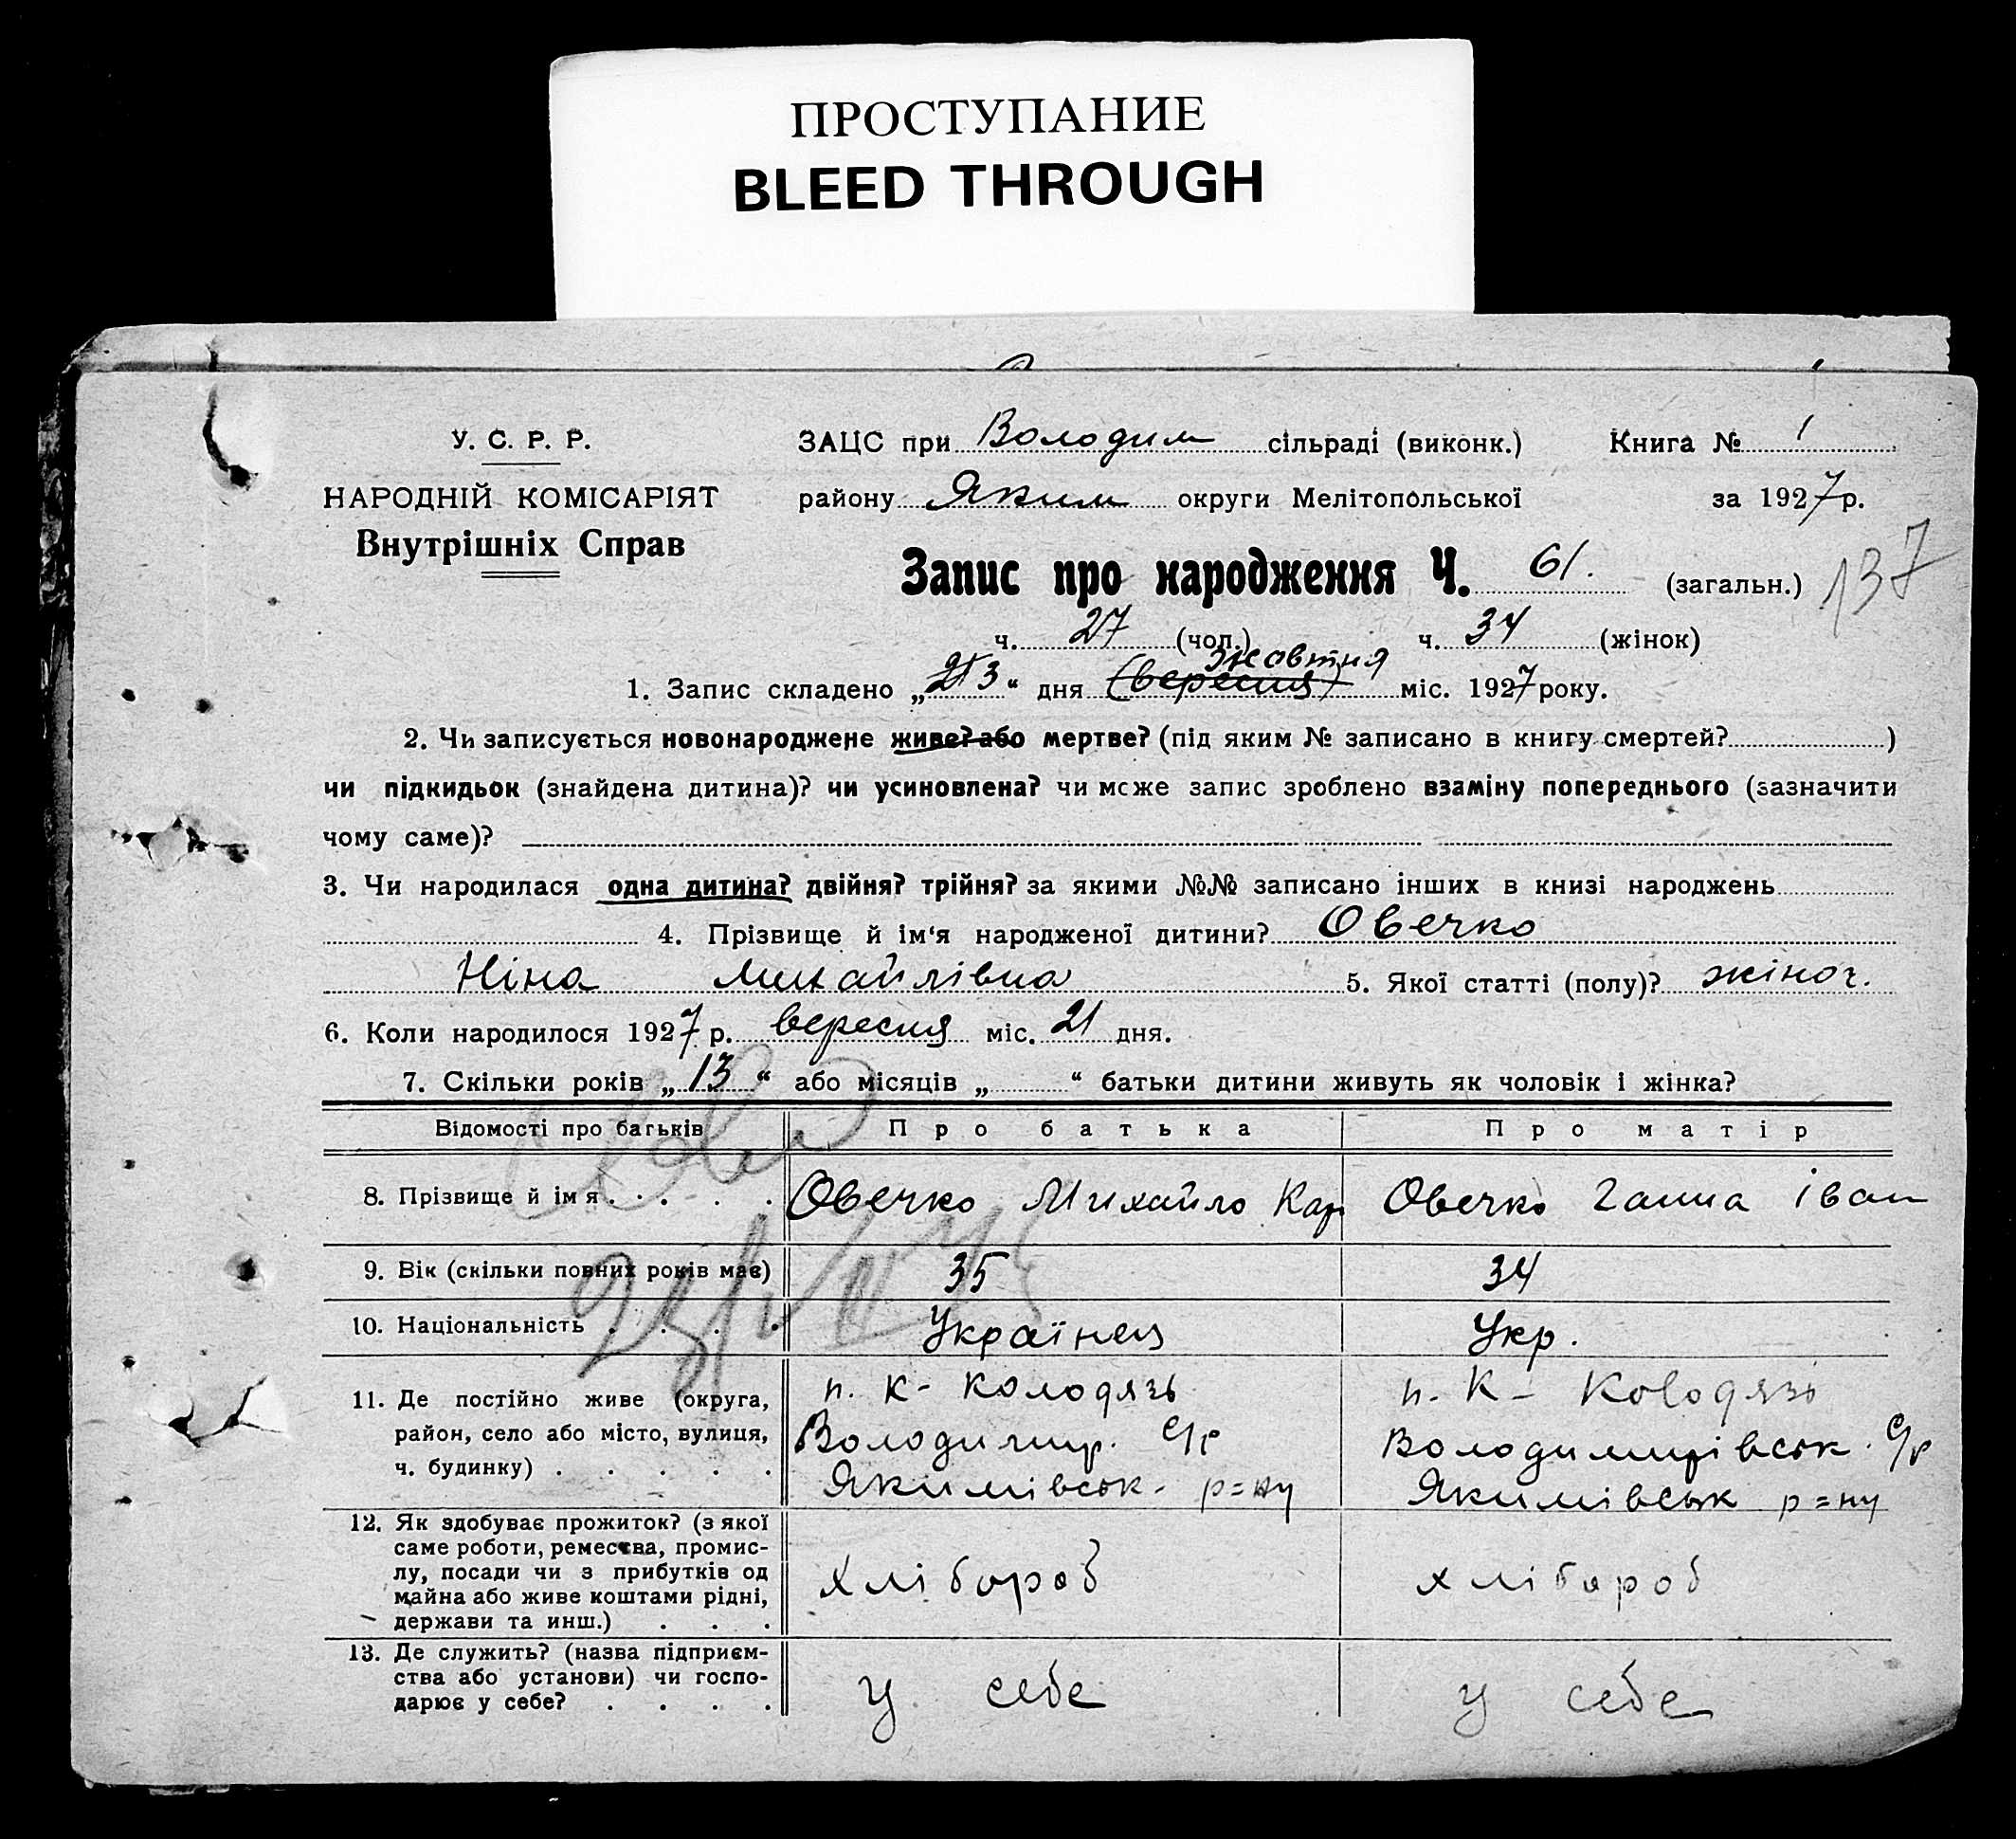 ПРОСТУПАНИЕ
BLEED THROUGH
У. С. Р. Р.
НАРОДНІЙ КОМІСАРІЯТ
Внутрішніх Справ
ЗАЦС при Володим сільраді (виконк.) Книга № 1
району Яким округи Мелітопольської за 1927 р.
Запис про народження Ч. 61. (загальн.) 137
ч. 27 (чол.) ч. 34 (жінок)
жовтня
1. Запис складено „ 3 “ дня (вересня) міс. 1927 року.
2. Чи записується новонароджене живе? або мертве? (під яким № записано в книгу смертей? )
чи підкидьок (знайдена дитина)? чи усиновлена? чи може запис зроблено взаміну попереднього (зазначити
чому саме)?
3. Чи народилася одна дитина? двійня? трійня? за якими №№ записано інших в книзі народжень
4. Прізвище й ім'я народженої дитини? Овечко
Ніна Михайлівна 5. Якої статті (полу)? жіноч.
6. Коли народилося 1927 р. вересня міс. 21 дня.
7. Скільки років „ 13 “ або місяців „ “ батьки дитини живуть як чоловік і жінка?
Відомості про батьків Про батька Про матір
8. Прізвище й ім я Овечко Михайло Кар Овечко Ганна Іван
9. Вік (скільки повних років має) 35 34
10. Національність Українець Укр.
11. Де постійно живе (округа, п. К- Колодязь п. К- Колодязь
район, село або місто, вулиця, Володимир. С/р Володимирівськ. С/р
ч. будинку) Якимівськ. р=ну Якимівськ р=ну
12. Як здобуває прожиток? (з якої
саме роботи, ремества, промис-
лу, посади чи з прибутків од хлібороб хлібороб
майна або живе коштами рідні,
держави та инш.)
13. Де служить? (назва підприєм-
ства або установи) чи госпо- у себе у себе
дарює у себе?